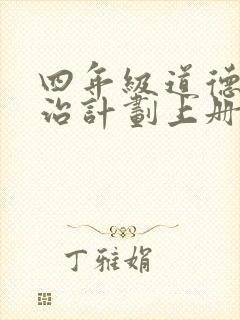 四年級道德
治計劃上册
丁雅娟